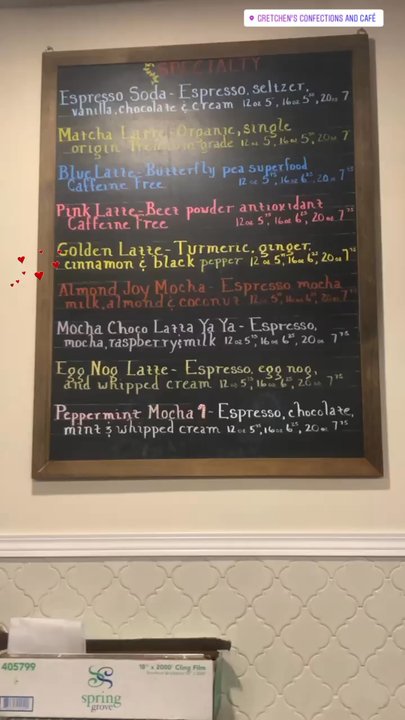 GRETCHEN'S CONFECTIONS AND CAFÉ
SPECIALTY
Espresso Soda - Espresso, seltzer,
vanilla, chocolate & cream 12oz 5, 16oz 5, 20oz 7
Matcha Latte - Organic, single
origin grade 12oz 5, 16oz 5, 20oz 7
Blue Latte - Butterfly pea superfood
Caffeine Free 12oz 5, 16oz 6, 20oz 7
Pink Latte - Beet powder antioxidant
Caffeine Free 12oz 5, 16oz 6, 20oz 7
Golden Latte - Turmeric, ginger,
cinnamon & black pepper 12oz 5, 16oz 6, 20oz 7
Almond Joy Mocha - Espresso mocha,
milk, almond & coconut 12oz 5, 16oz 6, 20oz 7
Mocha Choco Latta Ya Ya - Espresso,
mocha, raspberry & milk 12oz 5, 16oz 6, 20oz 7
Egg Nog Latte - Espresso, egg nog,
and whipped cream 12oz 5, 16oz 6, 20oz 7
Peppermint Mocha - Espresso, chocolate,
mint & whipped cream 12oz 5, 16oz 6, 20oz 7
405799
18" x 2000' Cling Film
spring
grove